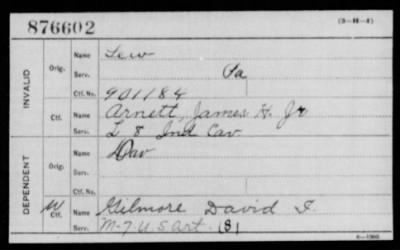 876602
(3—H—3)
INVALID
Orig.
Name Lew
Serv. Pa
Ctf. No. 901184
Ctf.
Name Arnett, James H. Jr
Serv. L 8 Ind Cav
DEPENDENT
Orig.
Name Dav
Serv.
Ctf. No.
W Ctf.
Name Gilmore David I.
Serv. M-7 U S Art. (8)
6—1903